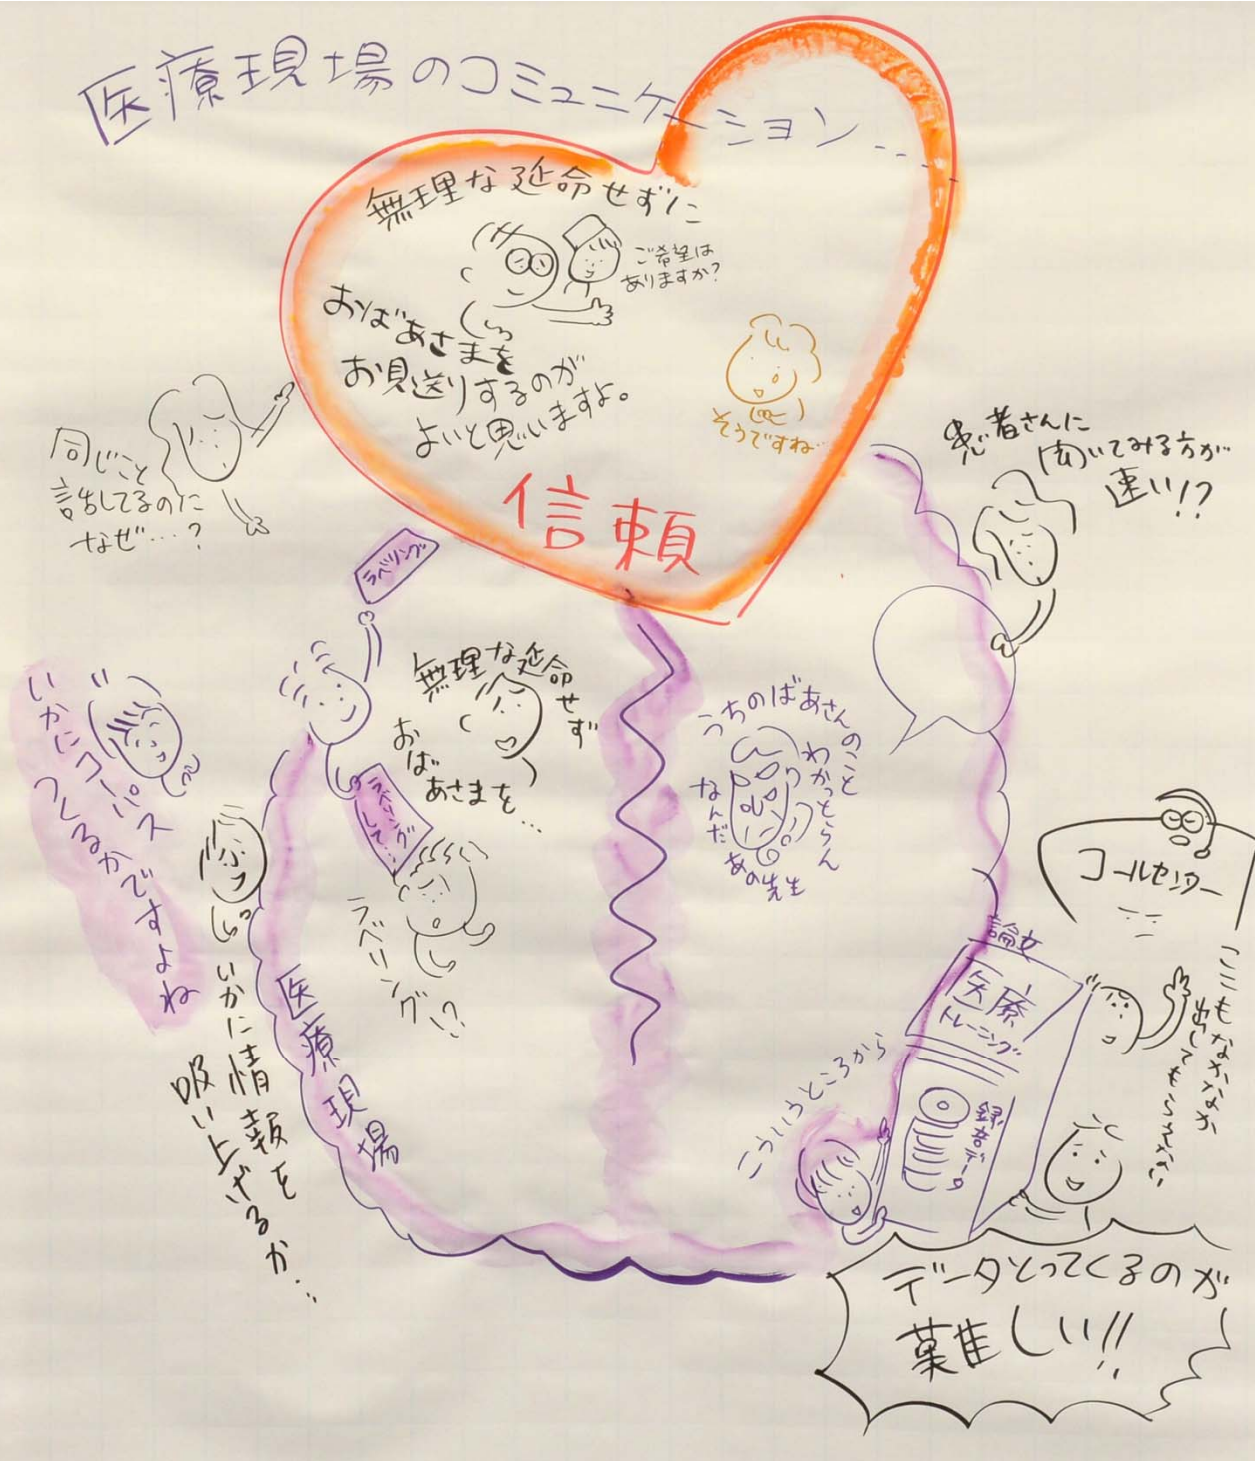 医療現場のコミュニケーション....
無理な延命せずに
ご希望は
ありますか?
おばあさまを
お見送りするのが
よいと思いますよ。
そうですね
信頼
同じこと
話してるのに
なぜ…?
患者さんに
聞いてみる方が
速い!?
ラベリング
無理な延命せず
おば
あさまを…
ラベリング
して…
ラベリング!?
うちのばあさんのこと
わかっとらん
なんだ
あの先生
いかにコーパス
つくるかですよね
いかに情報を
吸い上げるか…
医療現場
コールセンター
ここもなかなか
出してもらえない
論文
医療
トレーニング
録音データ
こういうところから
データとってくるのが
難しい!!